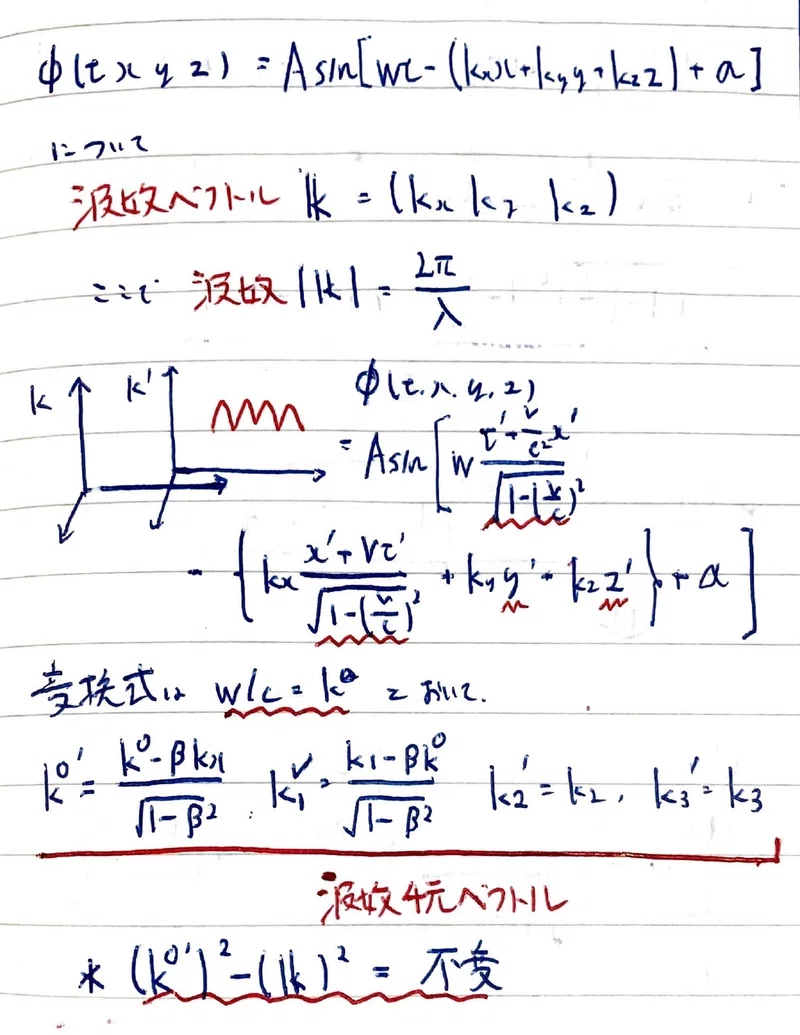 φ(t x y z) = A sin[wt - (kxx + kyy + kzz) + α]
について
波数ベクトル 𝕜 = (kx ky kz)
ここで 波数 |𝕜| = 2π/λ
k k' φ(t, x, y, z)
= A sin[w (t' + v/c² x')/√(1-(v/c)²
- {kx (x' + vt')/√(1-(v/c)²) + ky y' + kz z'} + α]
変換式は w/c = k⁰ とおいて.
k⁰' = (k⁰ - βkx)/√(1-β²) . k₁' = (k₁ - βk⁰)/√(1-β²) k₂' = k₂, k₃' = k₃
波数4元ベクトル
* (k⁰')² - (𝕜)² = 不変